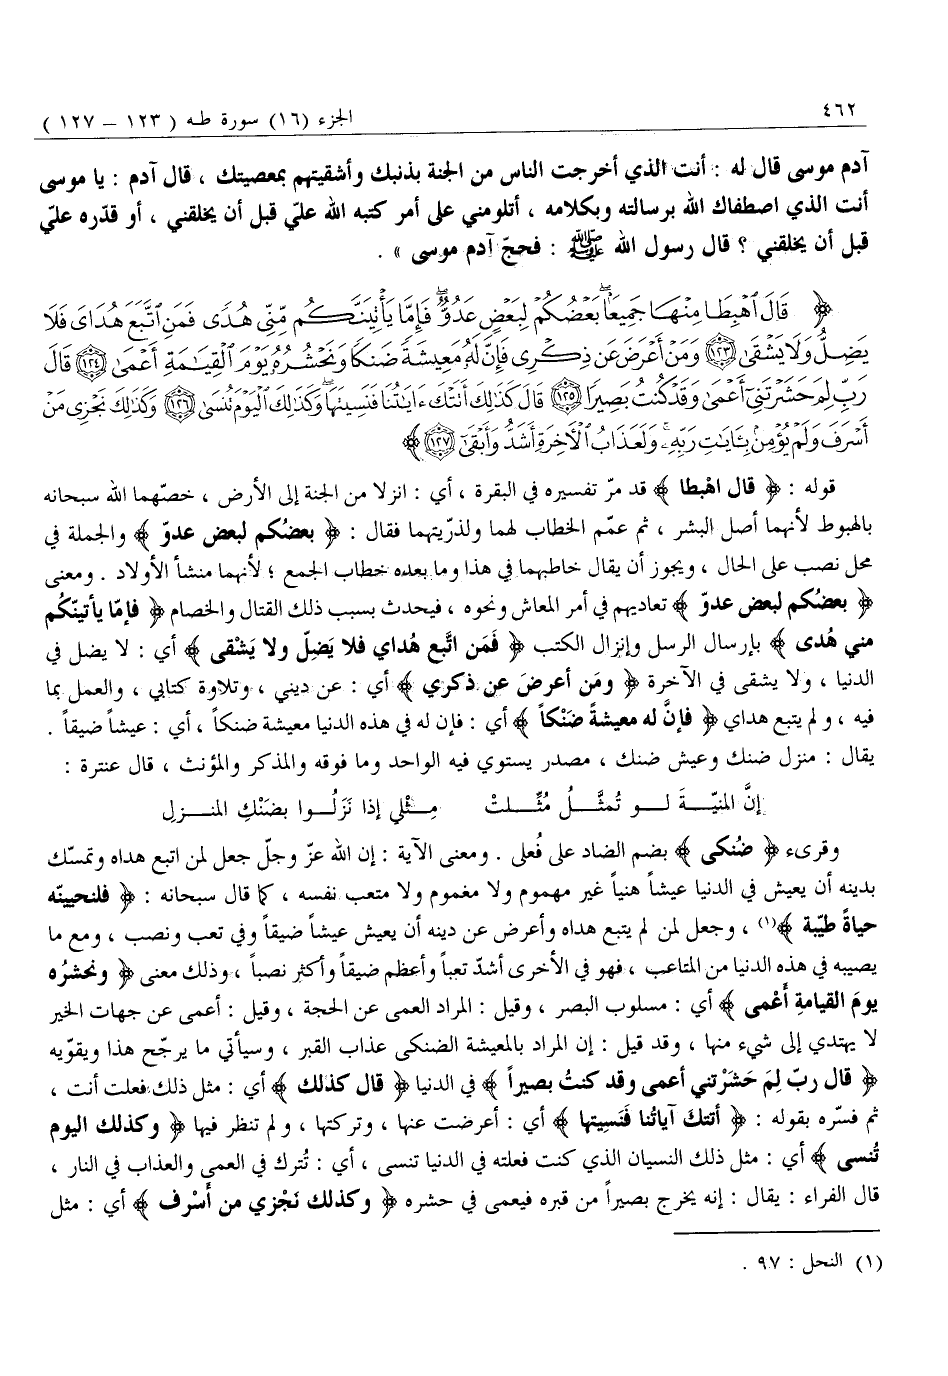 ٤٦٢
الجزء (١٦) سورة طه ( ١٢٣ – ١٢٧ )
آدم موسى قال له : أنت الذي أخرجت الناس من الجنة بذنبك وأشقيتهم بمعصيتك ، قال آدم : يا موسى
أنت الذي اصطفاك الله برسالته وبكلامه ، أتلومني على أمر كتبه الله عليّ قبل أن يخلقني ، أو قدّره عليّ
قبل أن يخلقني ؟ قال رسول الله ﷺ : فحجّ آدم موسى » .
﴿ قَالَ ٱهْبِطَا مِنْهَا جَمِيعًۢا ۖ بَعْضُكُمْ لِبَعْضٍ عَدُوٌّ ۖ فَإِمَّا يَأْتِيَنَّكُم مِّنِّي هُدًى فَمَنِ ٱتَّبَعَ هُدَايَ فَلَا
يَضِلُّ وَلَا يَشْقَىٰ ﴿١٢٣﴾ وَمَنْ أَعْرَضَ عَن ذِكْرِي فَإِنَّ لَهُۥ مَعِيشَةً ضَنكًا وَنَحْشُرُهُۥ يَوْمَ ٱلْقِيَٰمَةِ أَعْمَىٰ ﴿١٢٤﴾ قَالَ
رَبِّ لِمَ حَشَرْتَنِيٓ أَعْمَىٰ وَقَدْ كُنتُ بَصِيرًا ﴿١٢٥﴾ قَالَ كَذَٰلِكَ أَتَتْكَ ءَايَٰتُنَا فَنَسِيتَهَا ۖ وَكَذَٰلِكَ ٱلْيَوْمَ تُنسَىٰ ﴿١٢٦﴾ وَكَذَٰلِكَ نَجْزِي مَنْ
أَسْرَفَ وَلَمْ يُؤْمِنۢ بِـَٔايَٰتِ رَبِّهِۦ ۚ وَلَعَذَابُ ٱلْءَاخِرَةِ أَشَدُّ وَأَبْقَىٰٓ ﴿١٢٧﴾ ﴾
قوله : ﴿ قال اهْبِطا ﴾ قد مرّ تفسيره في البقرة ، أي : انزلا من الجنة إلى الأرض ، خصّهما الله سبحانه
بالهبوط لأنهما أصل البشر ، ثم عمّم الخطاب لهما ولذرّيتهما فقال : ﴿ بعضُكم لبعض عدوّ ﴾ والجملة في
محل نصب على الحال ، ويجوز أن يقال خاطبهما في هذا وما بعده خطاب الجمع ؛ لأنهما منشأ الأولاد . ومعنى
﴿ بعضُكم لبعض عدوّ ﴾ تعاديهم في أمر المعاش ونحوه ، فيحدث بسبب ذلك القتال والخصام ﴿ فإمّا يأتينّكُم
مني هُدى ﴾ بإرسال الرسل وإنزال الكتب ﴿ فَمَن اتَّبع هُداي فلا يَضِلّ ولا يَشْقى ﴾ أي : لا يضل في
الدنيا ، ولا يشقى في الآخرة ﴿ ومَن أعرضَ عن ذكري ﴾ أي : عن ديني ، وتلاوة كتابي ، والعمل بما
فيه ، ولم يتبع هداي ﴿ فإنَّ له معيشةً ضَنْكاً ﴾ أي : فإن له في هذه الدنيا معيشة ضنكاً ، أي : عيشاً ضيقاً .
يقال : منزل ضنك وعيش ضنك ، مصدر يستوي فيه الواحد وما فوقه والمذكر والمؤنث ، قال عنترة :
إنَّ المنيّـةَ لـو تُمثَّـلُ مُثِّلتْ مِثْلي إذا نَزَلُـوا بضَنْكِ المنـزلِ
وقرىء ﴿ ضُنكى ﴾ بضم الضاد على فُعلى . ومعنى الآية : إن الله عزّ وجلّ جعل لمن اتبع هداه وتمسّك
بدينه أن يعيش في الدنيا عيشاً هنياً غير مهموم ولا مغموم ولا متعب نفسه ، كما قال سبحانه : ﴿ فلنحيينّه
حياةً طيّبة ﴾(١) ، وجعل لمن لم يتبع هداه وأعرض عن دينه أن يعيش عيشاً ضيقاً وفي تعب ونصب ، ومع ما
يصيبه في هذه الدنيا من المتاعب ، فهو في الأخرى أشدّ تعباً وأعظم ضيقاً وأكثر نصباً ، وذلك معنى ﴿ ونحشرُه
يومَ القيامةِ أَعْمى ﴾ أي : مسلوب البصر ، وقيل : المراد العمى عن الحجة ، وقيل : أعمى عن جهات الخير
لا يهتدي إلى شيء منها ، وقد قيل : إن المراد بالمعيشة الضنكى عذاب القبر ، وسيأتي ما يرجّح هذا ويقوّيه
﴿ قال ربّ لِمَ حَشَرْتني أعمى وقد كنتُ بصيراً ﴾ في الدنيا ﴿ قال كذلك ﴾ أي : مثل ذلك فعلت أنت ،
ثم فسّره بقوله : ﴿ أتتكَ آياتُنا فَنَسيتها ﴾ أي : أعرضت عنها ، وتركتها ، ولم تنظر فيها ﴿ وكذلك اليوم
تُنسى ﴾ أي : مثل ذلك النسيان الذي كنت فعلته في الدنيا تنسى ، أي : تُترك في العمى والعذاب في النار ،
قال الفراء : يقال : إنه يخرج بصيراً من قبره فيعمى في حشره ﴿ وكذلك نَجْزي من أَسْرف ﴾ أي : مثل
(١) النحل : ٩٧ .